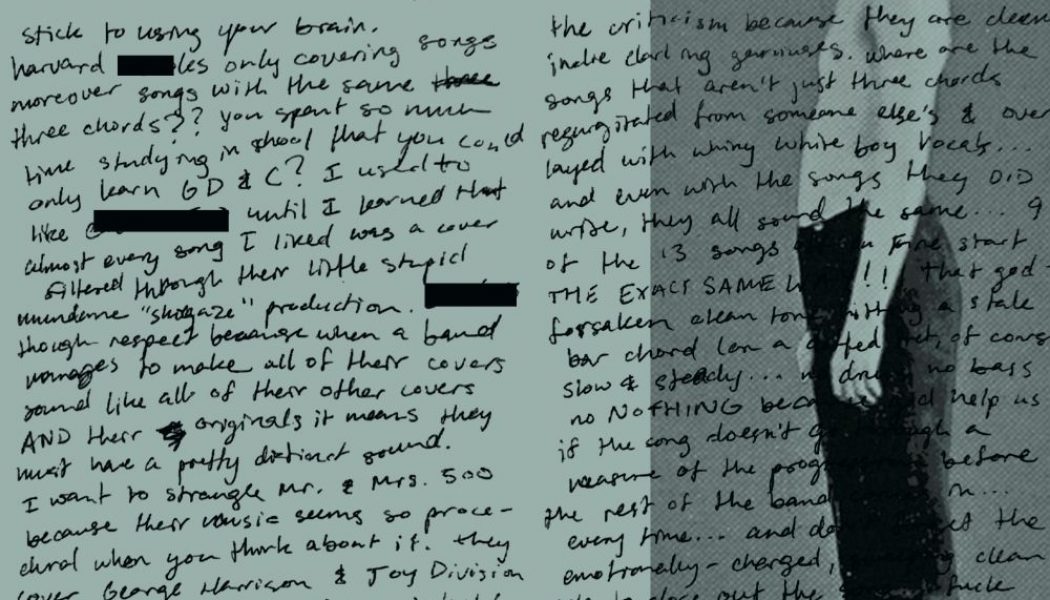 stick to using your brain.
harvard les only covering songs
moreover songs with the same three
three chords?? you spent so much
time studying in school that you could
only learn G D & C? I used to
like until I learned that
almost every song I liked was a cover
filtered through their little stupid
mundane "shogaze" production.
though respect because when a band
manages to make all of their covers
sound like all of their other covers
AND their originals it means they
must have a pretty distinct sound.
I want to strangle Mr. & Mrs. 500
because their music seems so proce-
dural when you think about it. they
cover George Harrison & Joy Division
the criticism because they are clean
indie darling geniuses. where are the
songs that aren't just three chords
regurgitated from someone else's & over
layed with whiny white boy vocals...
and even with the songs they DID
write, they all sound the same... 9
of the 13 songs on Fire start
THE EXACT SAME !!! that god-
forsaken clean tone hitting a stale
bar chord (on a dotted , of cours
slow & steady... no drums no bass
no NOTHING because god help us
if the song doesn't go through a
measure of the progression before
the rest of the band in...
every time... and don't the
emotionally-charged, clean
out the fuck